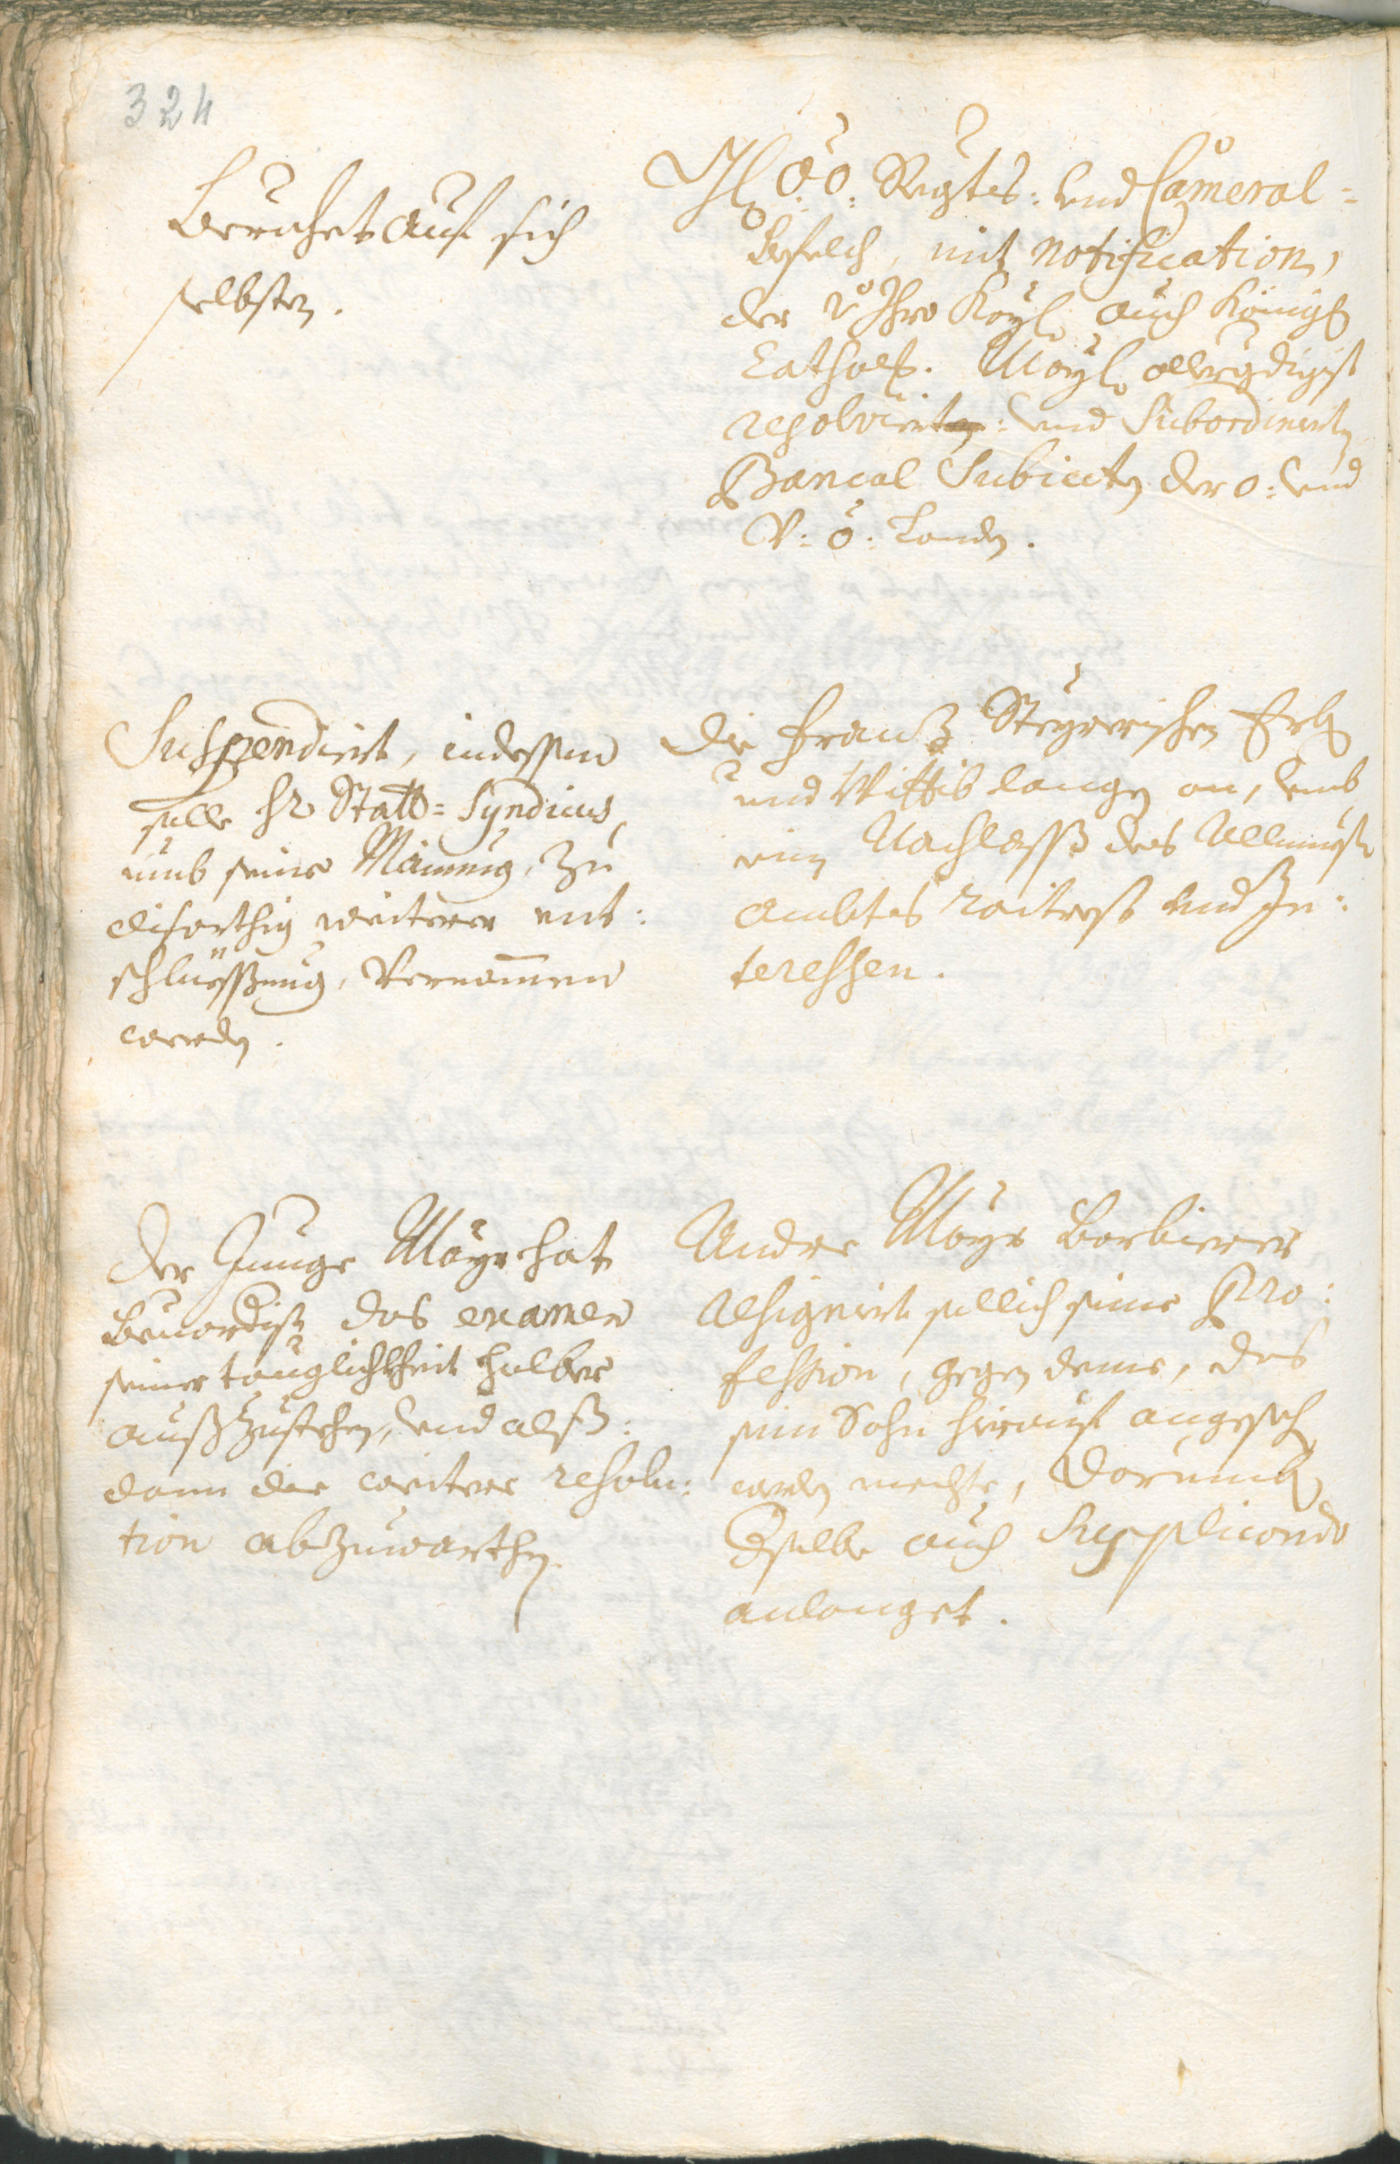 324
Beruehet auf sich
selbsten.
O:Ö: Regts: und Cameral=
Befelch, mit notification,
der v Ihro Kayl. auch Königl
Catholl. Mayl. allergdigist
resolvierten: und Subordinierten
Bancal Subiecten der O: und
V: Ö: Landen.
Suspendiert, indessen
solle Hr Statt=Syndicus,
umb seine Mainung, zu
disorthig weiterer ent:
schlüessung, Vernommen
werden.
Die Franz Steyrerischen Erben
und Wittib langen an, umb
ein Nachlasß des Allmueß
Ambtes Raitrest und In:
teressen.
Der Junge Mayr hat
Bevordist das examen
seiner tauglichkheit halber
außzustehen, und alß:
dann die weitere resolu:
tion abzuwarthen.
Andre Mayr Barbierer
resigniert sellich seine Pro:
fession, gegen deme, das
sein Sohn hierauf angeseh
werden mechte, Darumb
dselbe auch Supplicando
anlanget.